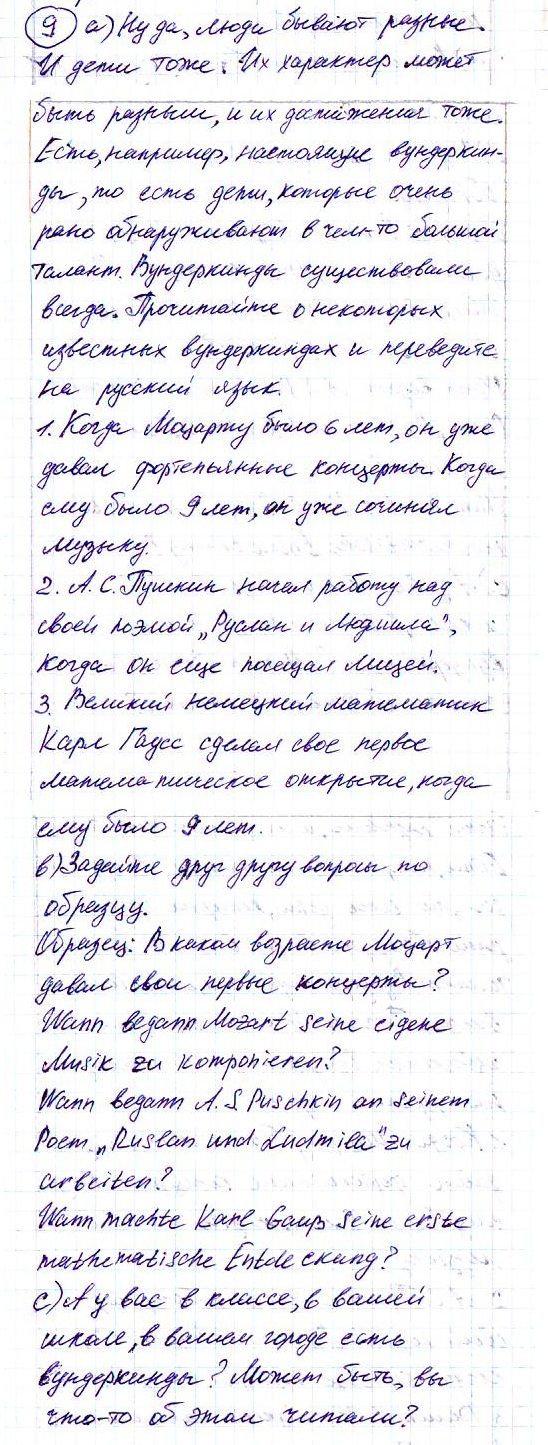 9 а) Ну да, люди бывают разные.
И дети тоже. Их характер может
быть разным, и их достижения тоже.
Есть, например, настоящие вундеркин-
ды, то есть дети, которые очень
рано обнаруживают в чем-то большой
талант. Вундеркинды существовали
всегда. Прочитайте о некоторых
известных вундеркиндах и переведите
на русский язык.
1. Когда Моцарту было 6 лет, он уже
давал фортепьянные концерты. Когда
ему было 9 лет, он уже сочинял
музыку.
2. А. С. Пушкин начал работу над
своей поэмой „Руслан и Людмила",
когда он еще посещал Лицей.
3. Великий немецкий математик
Карл Гаусс сделал свое первое
математическое открытие, когда
ему было 9 лет.
в) Задайте друг другу вопросы по
образцу.
Образец: В каком возрасте Моцарт
давал свои первые концерты?
Wann begann Mozart seine eigene
Musik zu komponieren?
Wann begann A. S. Puschkin an seinem
Poem „Ruslan und Ludmila" zu
arbeiten?
Wann machte Karl Gauß seine erste
mathematische Entdeckung?
с) А у вас в классе, в вашей
школе, в вашем городе есть
вундеркинды? Может быть, вы
что-то об этом читали?